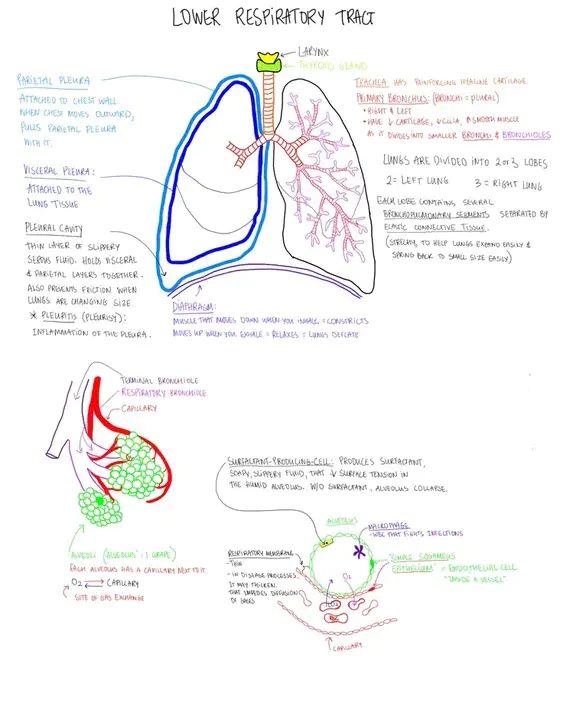 LOWER RESPIRATORY TRACT
LARYNX
THYROID GLAND
PARIETAL PLEURA
ATTACHED TO CHEST WALL
WHEN CHEST MOVES OUTWARD,
PULLS PARIETAL PLEURA
WITH IT.
VISCERAL PLEURA:
ATTACHED TO THE
LUNG TISSUE
PLEURAL CAVITY
THIN LAYER OF SLIPPERY
SEROUS FLUID. HOLDS VISCERAL
& PARIETAL LAYERS TOGETHER.
ALSO PREVENTS FRICTION WHEN
LUNGS ARE CHANGING SIZE.
* PLEURITIS (PLEURISY):
INFLAMMATION OF THE PLEURA.
TRACHEA HAS REINFORCING HYALINE CARTILAGE.
PRIMARY BRONCHUS: (BRONCHI = PLURAL)
• RIGHT & LEFT
• HAVE ↓ CARTILAGE, ↓ CILIA, ↑ SMOOTH MUSCLE
AS IT DIVIDES INTO SMALLER BRONCHI & BRONCHIOLES
LUNGS ARE DIVIDED INTO 2 OR 3 LOBES
2 = LEFT LUNG 3 = RIGHT LUNG
EACH LOBE CONTAINS SEVERAL
BRONCHOPULMONARY SEGMENTS SEPARATED BY
ELASTIC CONNECTIVE TISSUE.
(STRECHY, TO HELP LUNGS EXPAND EASILY &
SPRING BACK TO SMALL SIZE EASILY)
DIAPHRAGM:
MUSCLE THAT MOVES DOWN WHEN YOU INHALE = CONSTRICTS
MOVES UP WHEN YOU EXHALE = RELAXES = LUNGS DEFLATE
TERMINAL BRONCHIOLE
RESPIRATORY BRONCHIOLE
CAPILLARY
ALVEOLI (ALVEOLUS = 1 GRAPE)
EACH ALVEOLUS HAS A CAPILLARY NEXT TO IT.
O2 ⟷ CAPILLARY
SITE OF GAS EXCHANGE
SURFACTANT-PRODUCING-CELL: PRODUCES SURFACTANT,
SOAPY, SLIPPERY FLUID, THAT ↓ SURFACE TENSION IN
THE HUMID ALVEOLUS. W/O SURFACTANT, ALVEOLUS COLLAPSE.
ALVEOLUS
MACROPHAGE
- WBC THAT FIGHTS INFECTIONS
RESPIRATORY MEMBRANE
- THIN
- IN DISEASE PROCESSES,
IT MAY THICKEN.
THAT IMPEDES DIFFUSION
OF GASES
"SIMPLE SQUAMOUS
EPITHELIUM" = ENDOTHELIAL CELL
"INSIDE A VESSEL"
O2
CAPILLARY